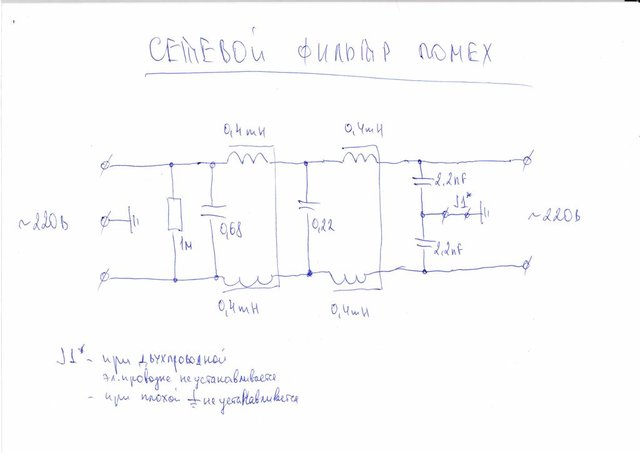 СЕТЕВОЙ ФИЛЬТР ПОМЕХ
0,4mH
0,4mH
~220В
1м
0,68
0,22
2,2nF
J1*
2,2nF
~220В
0,4mH
0,4mH
J1* - при двухпроводной
эл. проводке не устанавливается
- при плохой не устанавливается